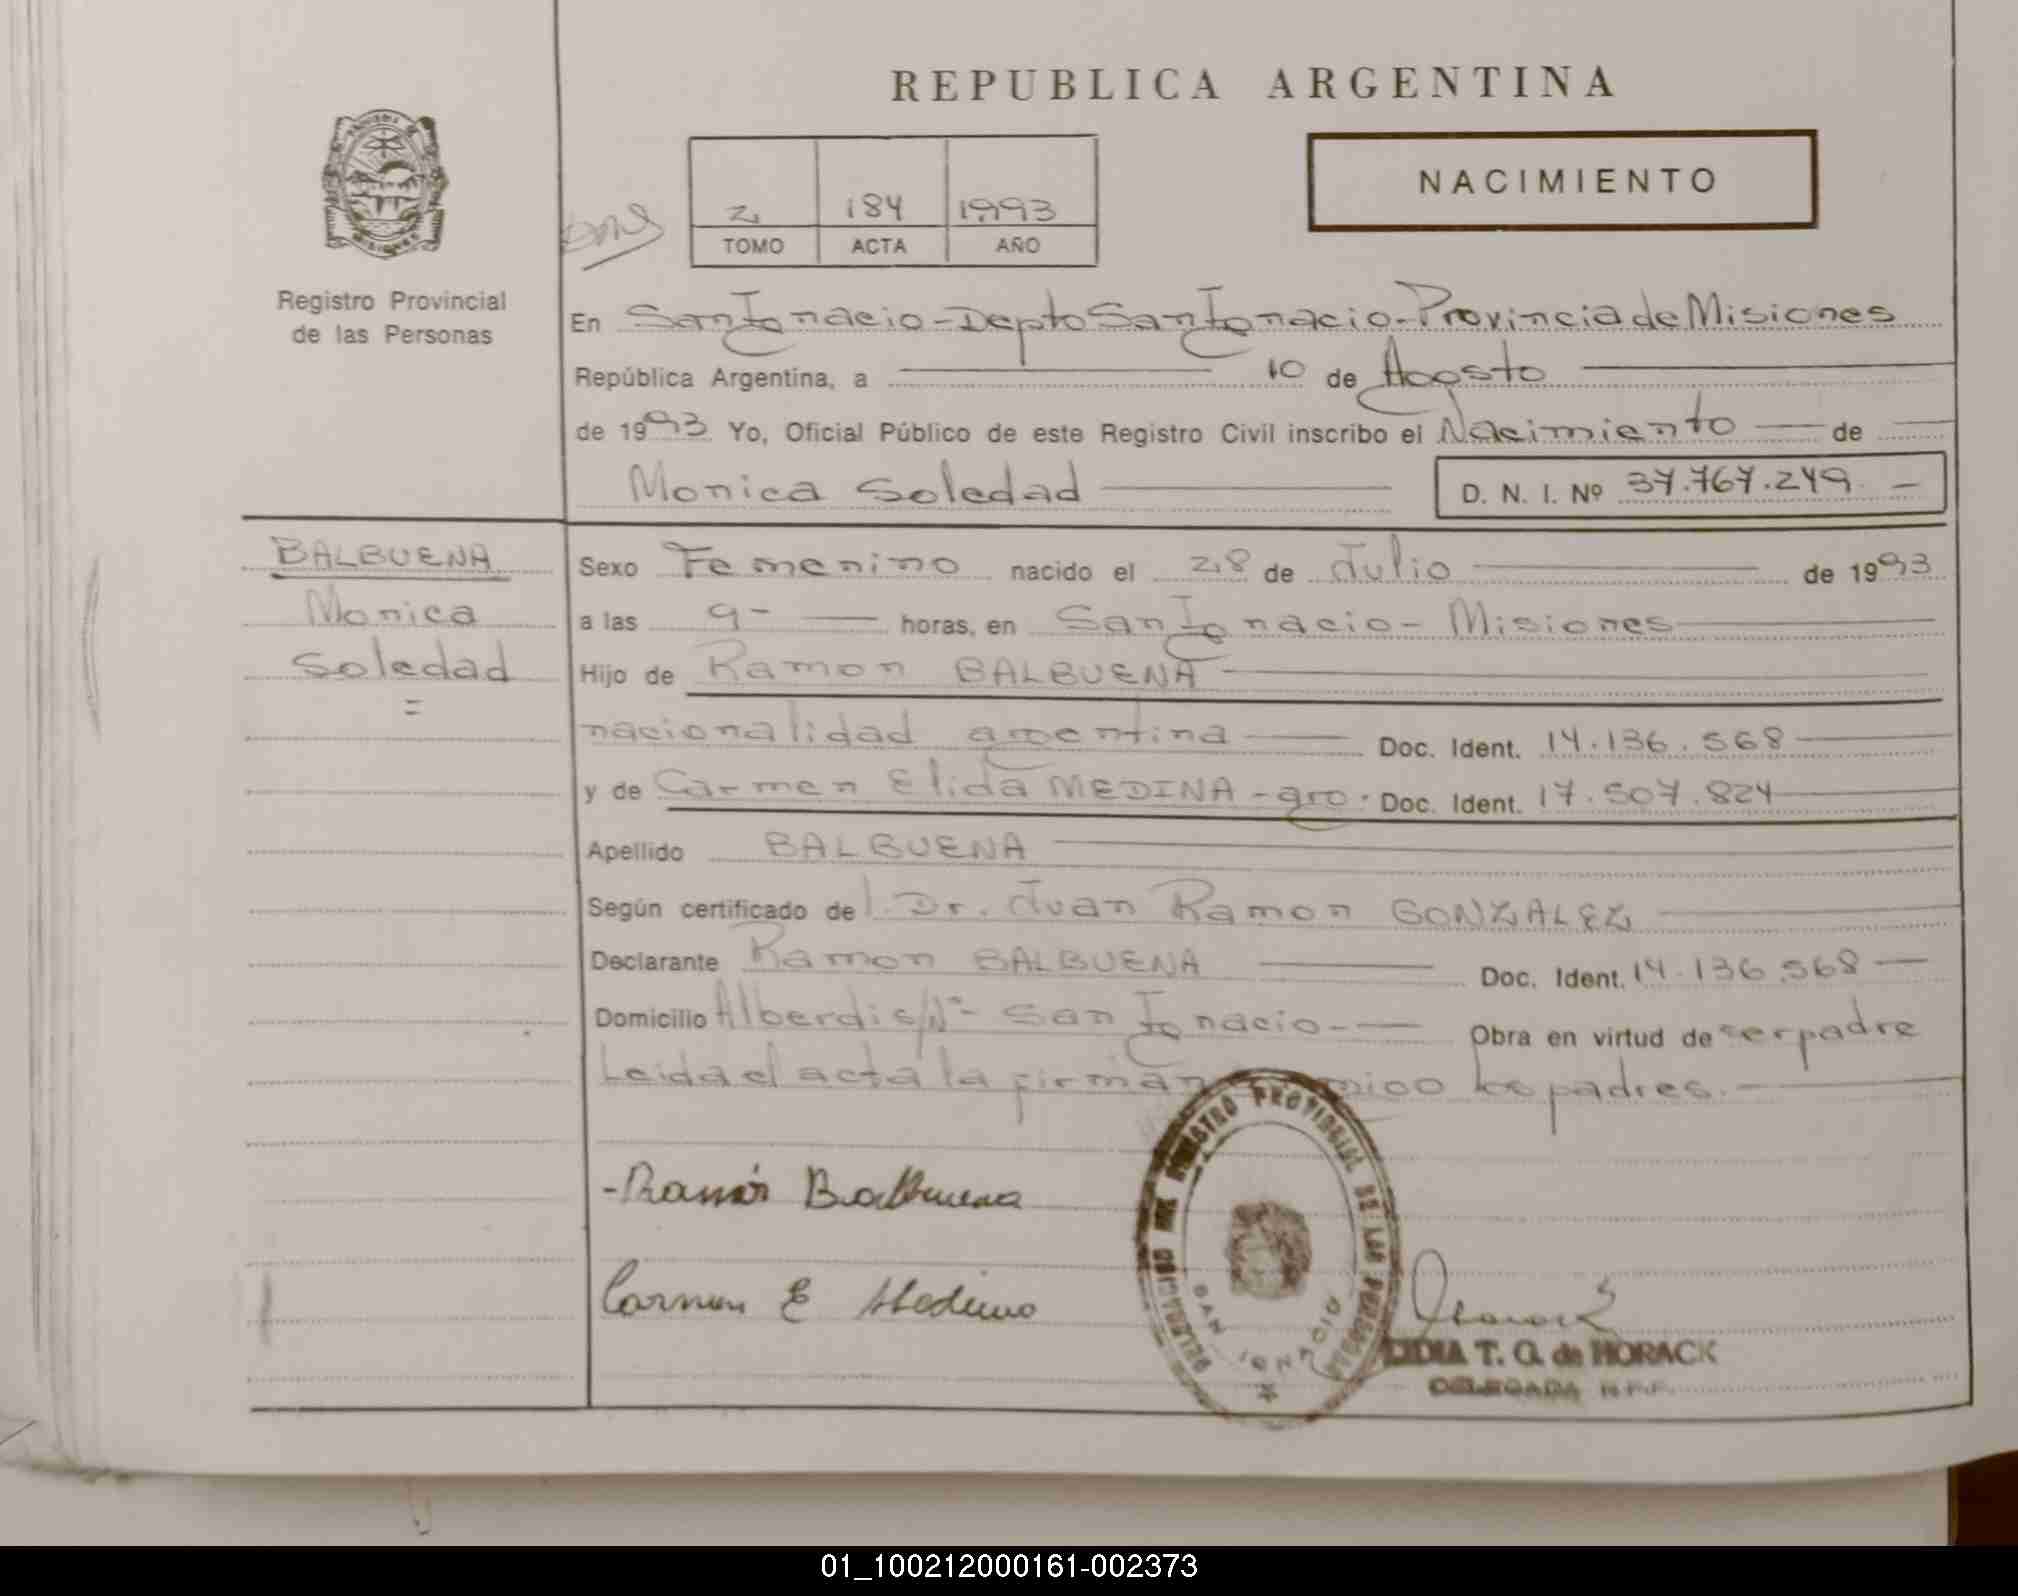 REPUBLICA ARGENTINA
NACIMIENTO
2 184 1993
TOMO ACTA AÑO
Registro Provincial
de las Personas
En San Ignacio - Depto San Ignacio - Provincia de Misiones
República Argentina, a 10 de Agosto
de 1993 Yo, Oficial Público de este Registro Civil inscribo el Nacimiento — de
Monica Soledad — D. N. I. Nº 37.767.249. —
BALBUENA
Monica
Soledad
=
Sexo Femenino nacido el 28 de Julio — de 1993
a las 9 - — horas, en San Ignacio - Misiones
Hijo de Ramon BALBUENA
nacionalidad argentina — Doc. Ident. 14.136.568 —
y de Carmen Elida MEDINA - arg. Doc. Ident. 17.507.824
Apellido BALBUENA
Según certificado del Dr. Juan Ramon GONZALEZ
Declarante Ramon BALBUENA — Doc. Ident. 14.136.568 —
Domicilio Alberdi s/Nº - San Ignacio - — Obra en virtud de ser padre
Leida el acta la firman los padres. —
-Ramón Balbuena
Carmen E Medina
REGISTRO PROVINCIAL DE LAS PERSONAS
SAN IGNACIO
LIDIA T. O. de HORACK
DELEGADA R.P.P.
01_100212000161-002373